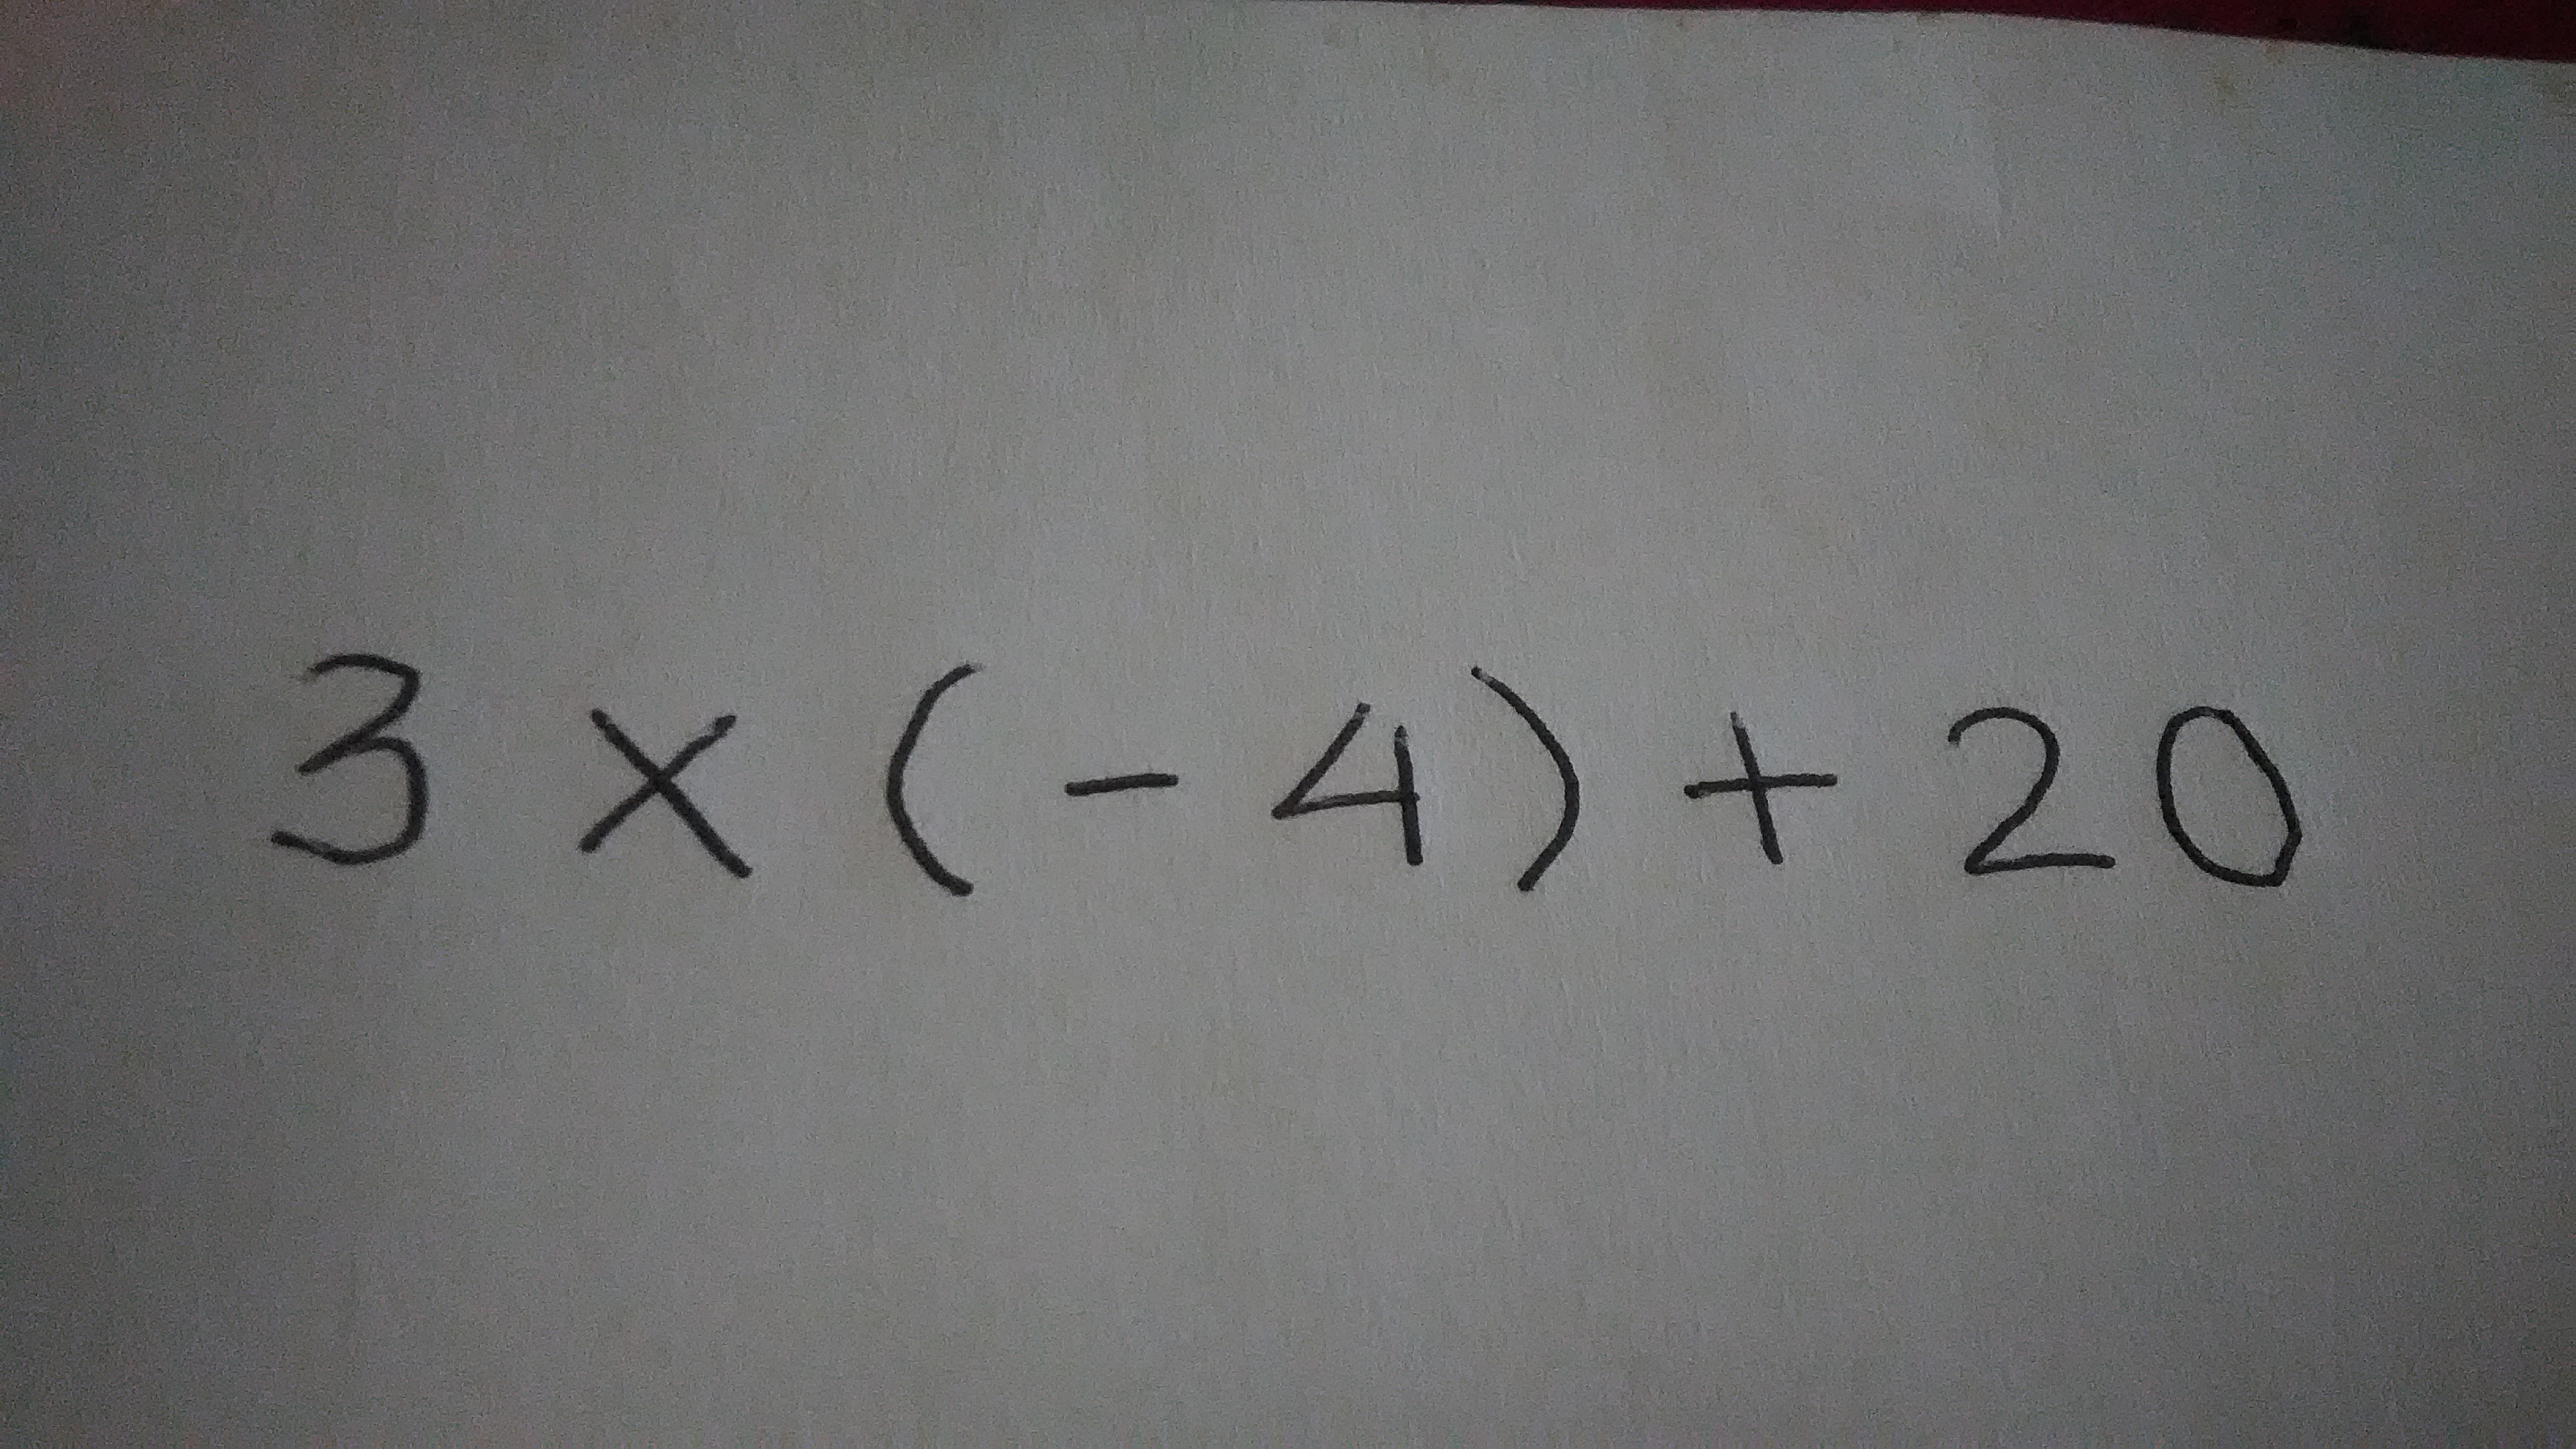 3 × (- 4) + 20